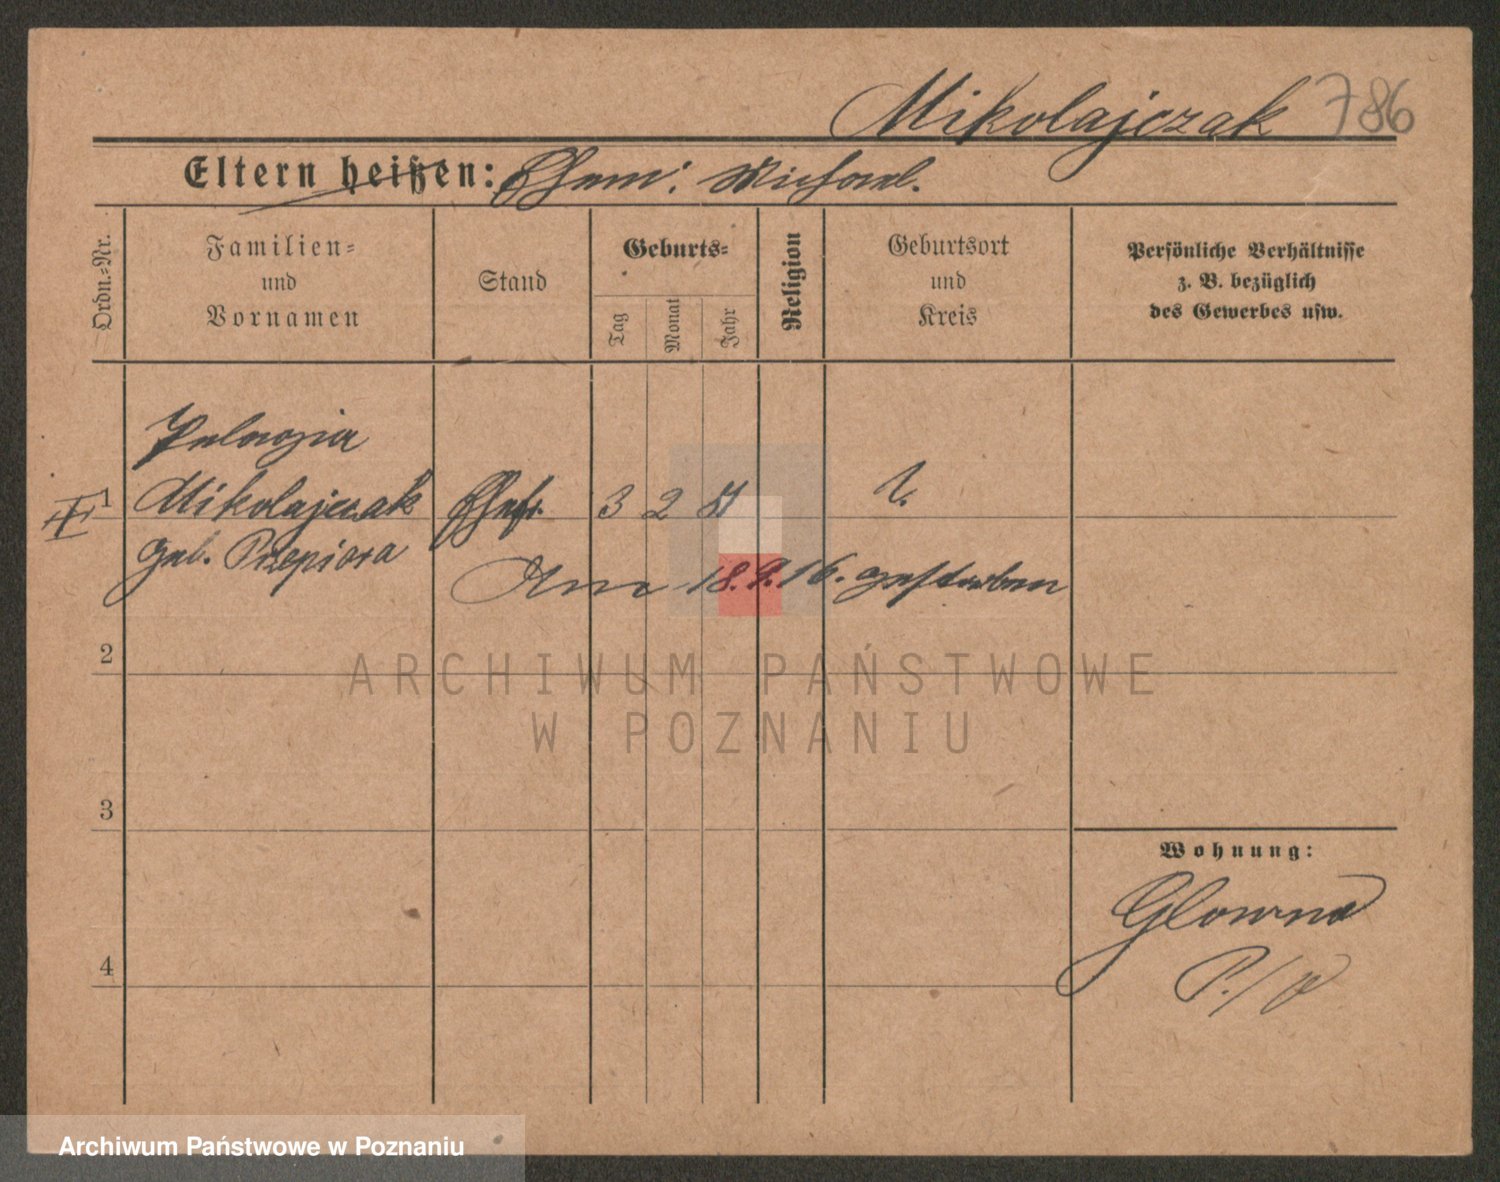 Mikolajczak 786
Eltern heißen: Ehem: Michael.
Ordn.=Nr.
Familien=
und
Vornamen
Stand
Geburts=
Tag
Monat
Jahr
Religion
Geburtsort
und
Kreis
Persönliche Verhältnisse
z. B. bezüglich
des Gewerbes usw.
Pelagia
1 Mikolajczak Ehefr. 3 2
geb. Przepiora
Am 18.9.16. gestorben
2
ARCHIWUM PAŃSTWOWE
W POZNANIU
3
Wohnung:
Glowno
4
Archiwum Państwowe w Poznaniu